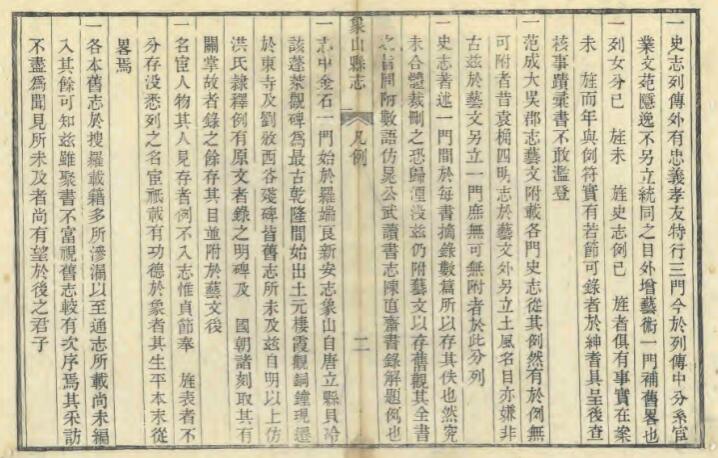 一史志列傳外有忠義孝友特行三門今於列傳中分系宦
業文苑隱逸不另立統同之目外增藝術一門補舊畧也
一列女分已　旌未　旌史志例已　旌者俱有事實在案
未　旌而年與例符實有若節可錄者於紳耆具呈後查
核事蹟彙書不敢濫登
一范成大吳郡志藝文附載各門史志從其例然有於例無
可附者昔袁桷四明志於藝文外另立土風名目亦嫌非
古茲於藝文另立一門庶無可無附者於此分列
一史志著述一門間於每書摘錄數篇所以存其佚也然究
未合體裁刪之恐歸湮没茲仍附藝文以存舊觀其全書
之旨間附數語仿晁公武讀書志陳直齋書錄解題例也
象山縣志
凡例
二
一志中金石一門始於羅端良新安志象山自唐立縣貝冷
該蓬萊觀碑爲最古乾隆間始出土元棲霞觀銅鐘現遷
於東寺及劉敓西谷殘碑皆舊志所未及茲自明以上仿
洪氏隸釋例有原文者錄之明碑及　國朝諸刻取其有
關掌故者錄之餘存其目並附於藝文後
一名宦人物其人見存者例不入志惟貞節奉　旌表者不
分存没悉列之名宦祇載有功德於象者其生平本末從
畧焉
一各本舊志於搜羅載籍多所滲漏以至通志所載尚未編
入其餘可知茲雖聚書不富視舊志較有次序焉其采訪
不盡爲聞見所未及者尚有望於後之君子